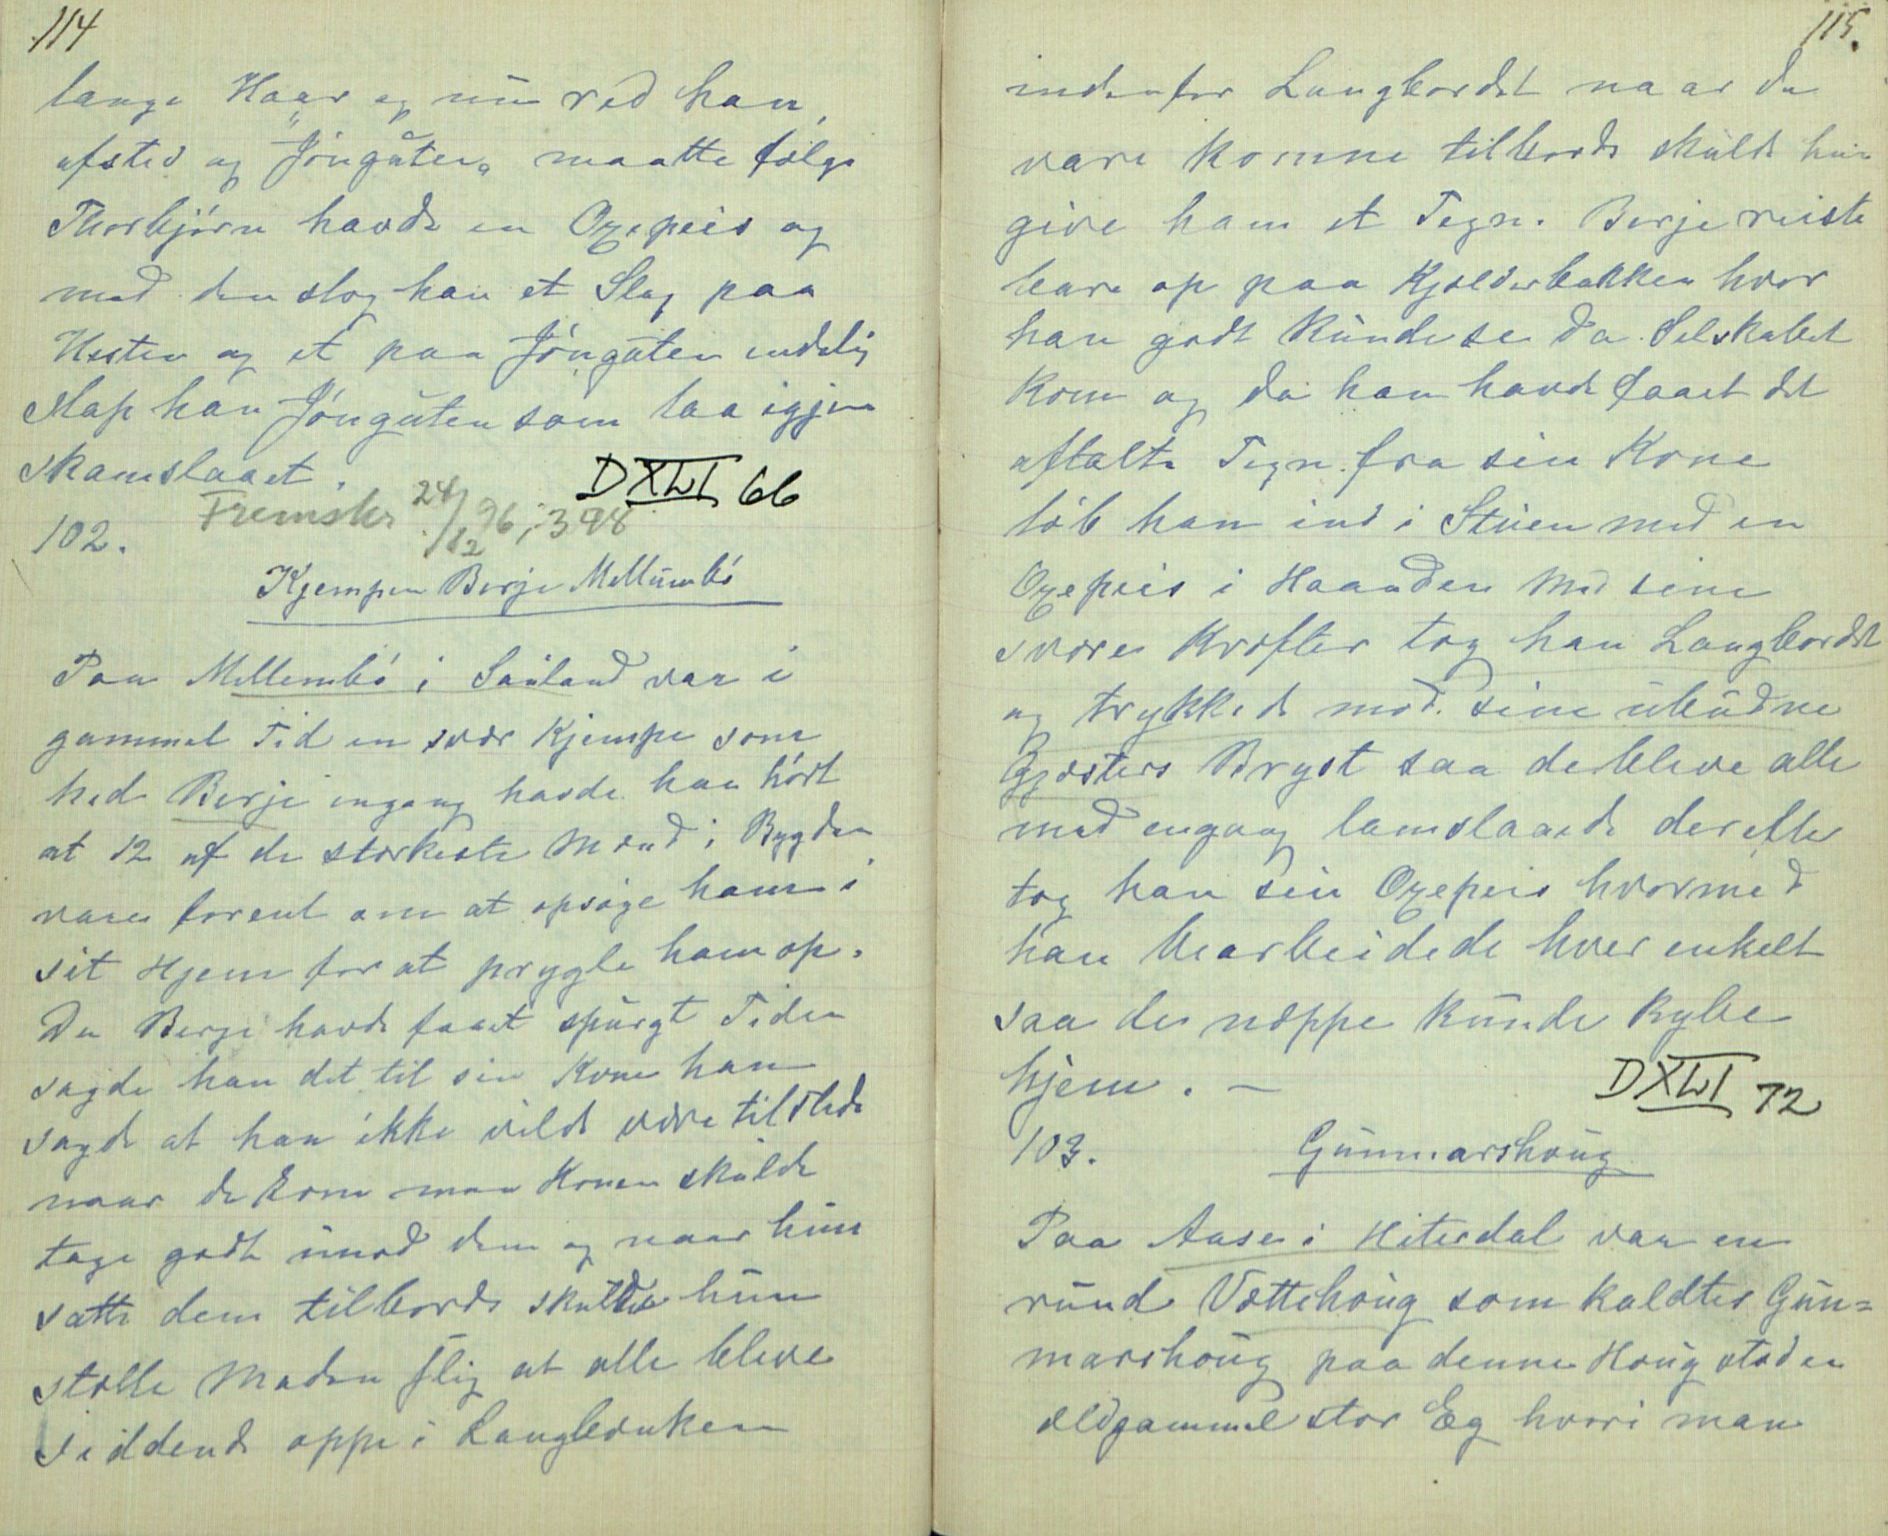 114
lange Haar og nu red han,
afsted og "Jóngúten" maatte følge
Thorbjórn havde en Oxepeis og
med den slog han et Slag paa
Hesten og et paa Jóngúten endelig
slap han Jóngúten som laa igjen
skamslaaet.
DXLI 66
Fremskr 24/12 96, 398
102.
Kjempen Berje Mellumbó
Paa Mellembó i Sauland var i
gammel Tid en svær Kjempe som
hed Berje engang havde han hórt
at 12 af de stærkeste Mænd i Bygden
vare forent om at opsóge ham i
sit Hjem for at prygle ham op.
Da Berje havde faaet spurgt Tiden
sagde han det til sin Kone han
sagde at han ikke vilde være tilstede
naar de kom men Konen skulde
tage godt imod dem og naar hun
satte dem tilbords skulde hun
stelle Maden slig at alle bleve
siddende oppe i Langbænken
115.
indenfor Langbordet naar de
vare komne tilbords skulde hun
give ham et Tegn. Berje reiste
bare op paa Kjelderbakken hvor
han godt kunde se da Selskabet
kom og da han havde faaet det
aftalte Tegn fra sin Kone
lób han ind i Stuen med en
Oxepeis i Haanden Med sine
svære Kræfter tog han Langbordet
og trykkede mod sine ubudne
Gjæsters Bryst saa de bleve alle
med engang lamslaaede derefter
tog han sin Oxepeis hvormed
han bearbeidede hver enkelt
saa de næppe kunde krybe
hjem. –
DXLI 72
103. Gunnarshoug
Paa Aase i Hiterdal var en
rund Vættehoug som kaldtes Gun=
marshoug paa denne Houg stod en
ældgammel stor Eg hvori man